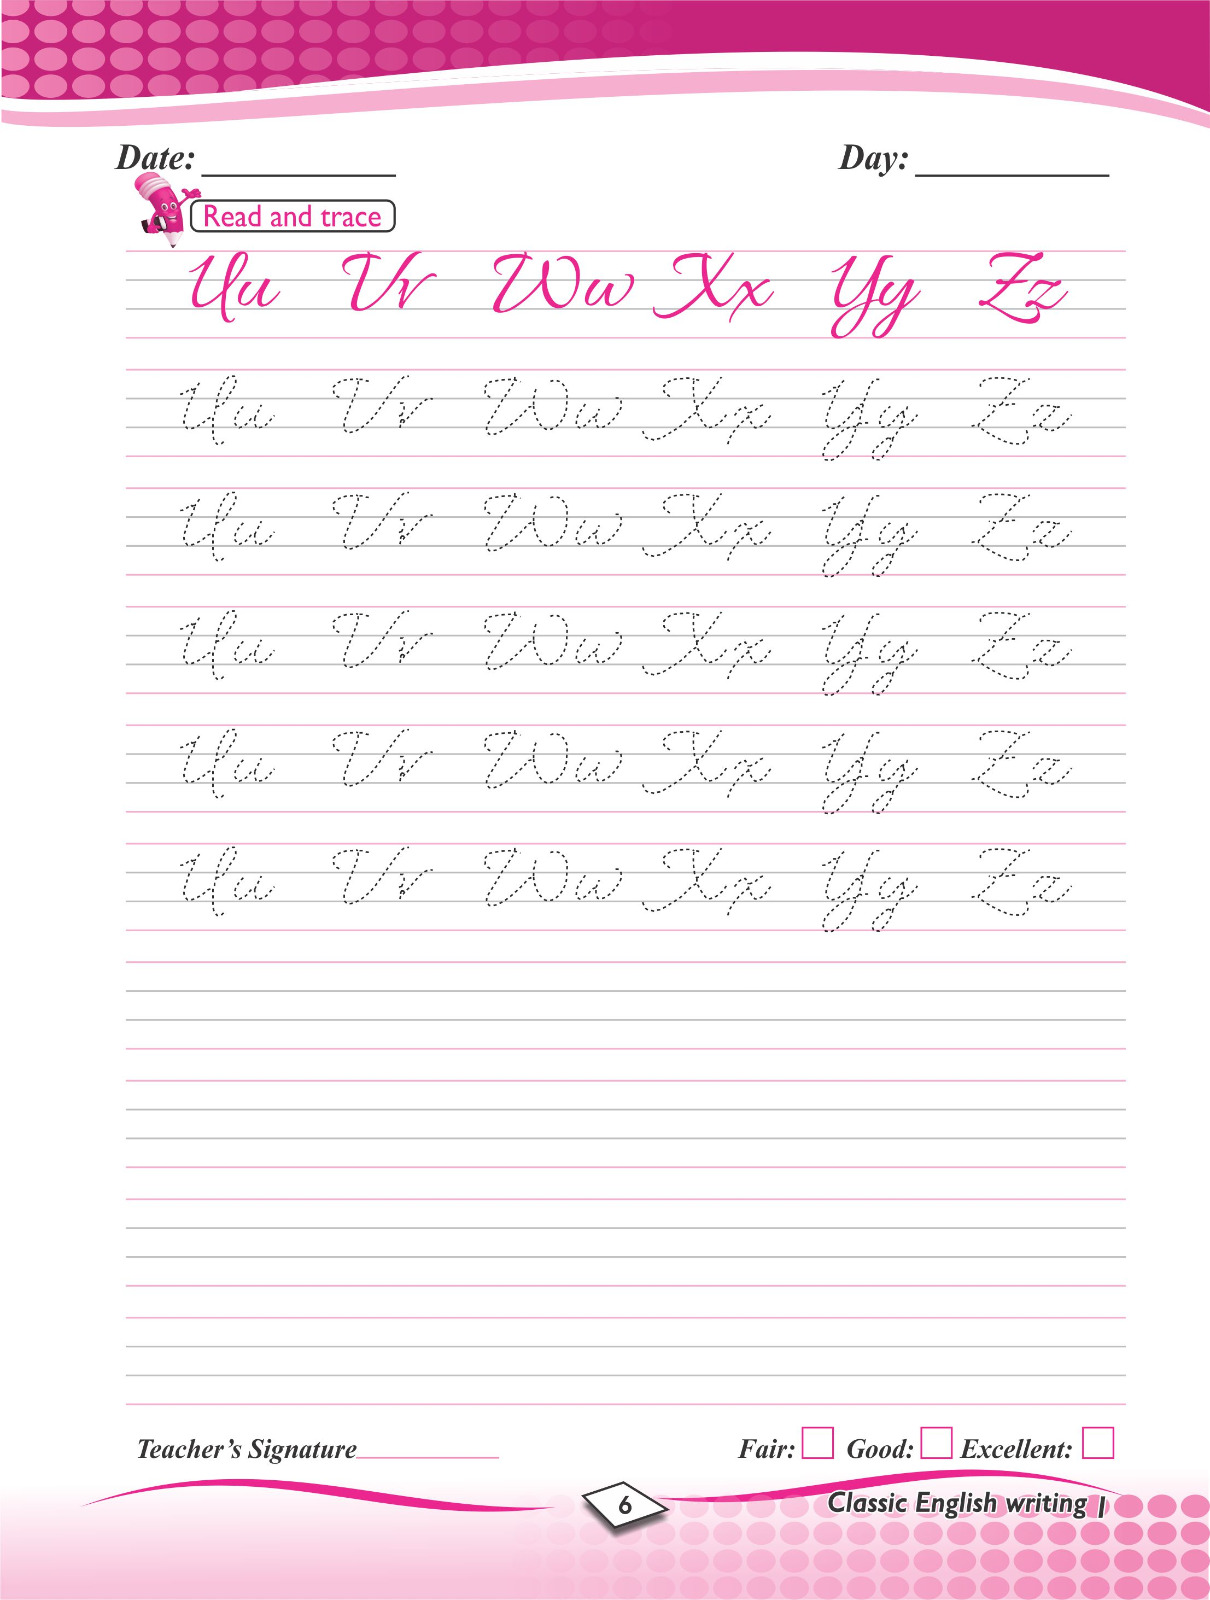 Date: ____________ Day: ____________
Read and trace
Uu Vv Ww Xx Yy Zz
Uu Vv Ww Xx Yy Zz
Uu Vv Ww Xx Yy Zz
Uu Vv Ww Xx Yy Zz
Uu Vv Ww Xx Yy Zz
Uu Vv Ww Xx Yy Zz
Teacher's Signature__________ Fair: Good: Excellent:
6 Classic English writing 1